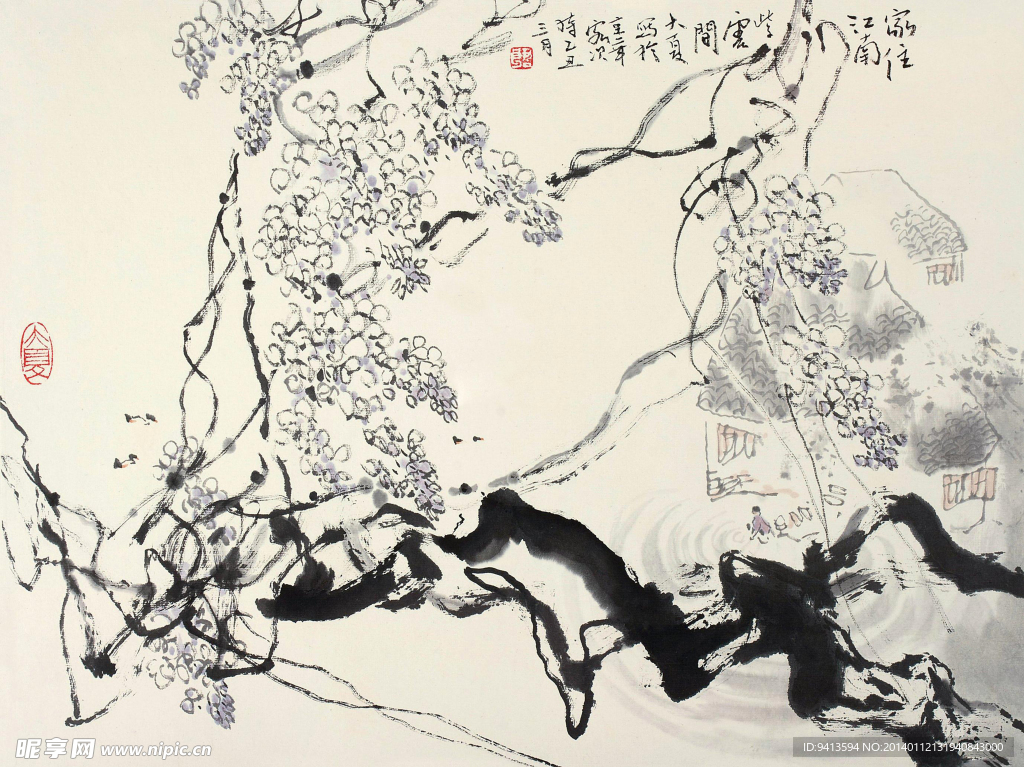 家住
江南
紫
雲
間
大夏
寫於
京華
客次
時乙丑
三月
大夏
昵享网 www.nipic.cn
ID:9413594 NO:20140112131940843000